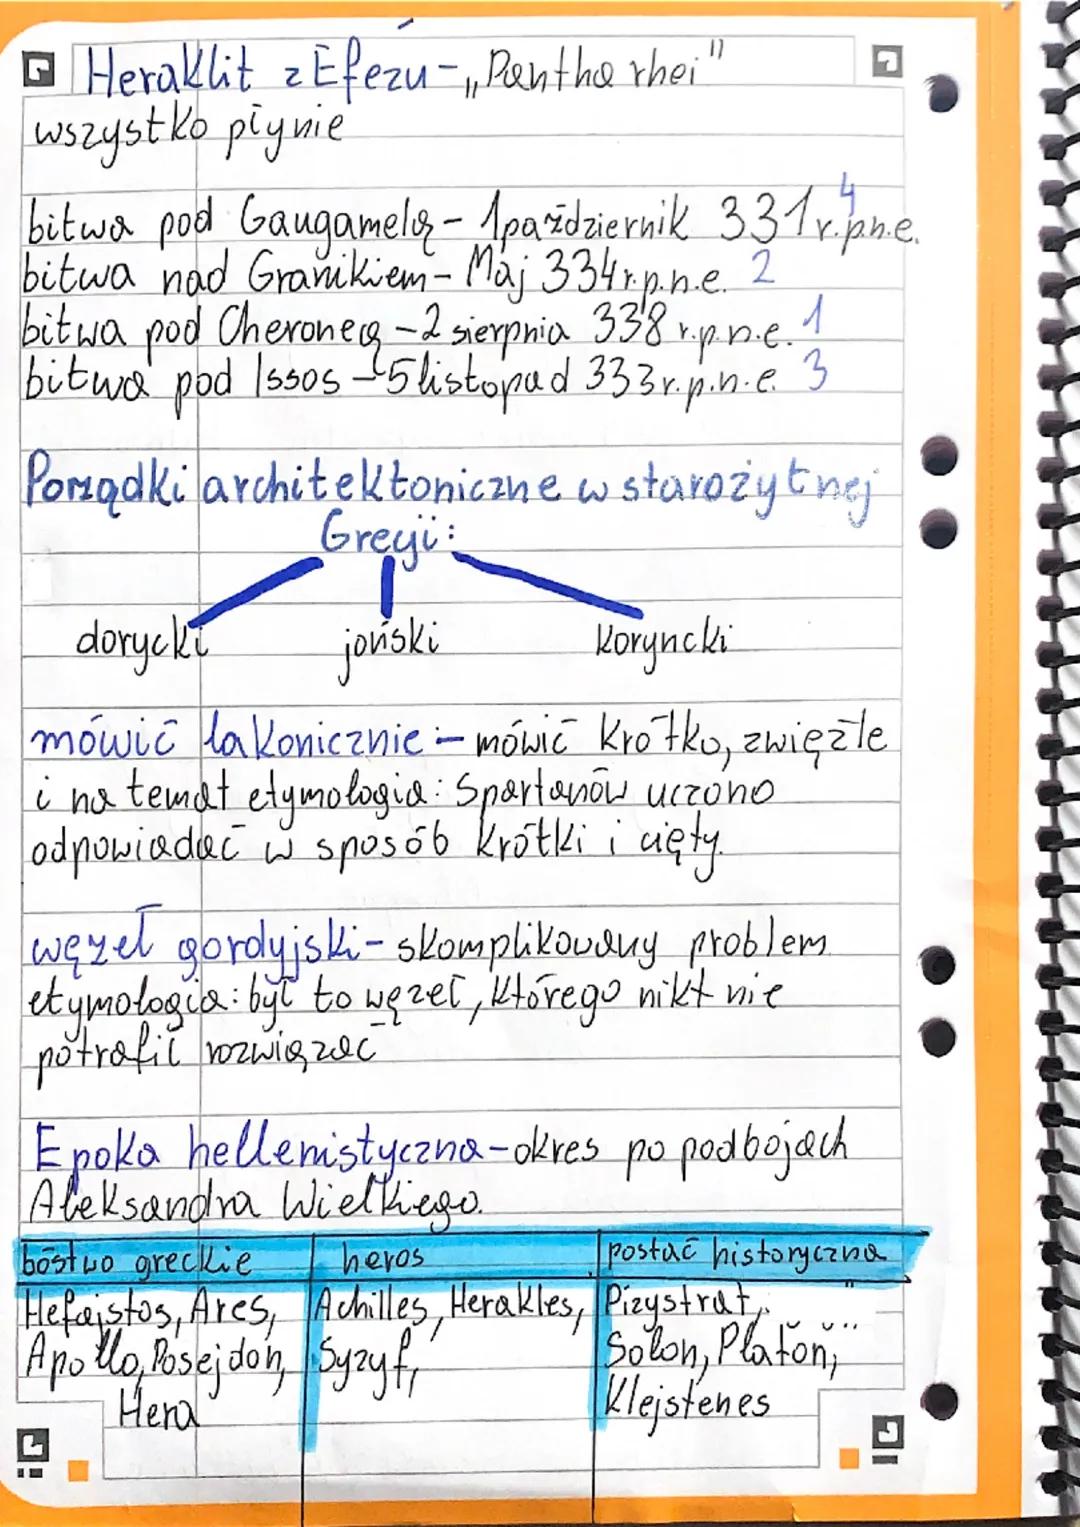 Heraklit z Efezu - „Pantha rhei"
wszystko płynie
bitwa pod Gaugamelą - 1 październik 331 r.p.n.e. 4
bitwa nad Granikiem - Maj 334 r.p.n.e. 2
bitwa pod Cheroneą - 2 sierpnia 338 r.p.n.e. 1
bitwa pod Issos - 5 listopad 333 r.p.n.e. 3
Porządki architektoniczne w starożytnej
Grecji:
dorycki joński koryncki
mówić lakonicznie - mówić krótko, zwięźle
i na temat etymologia: Spartanów uczono
odpowiadać w sposób krótki i cięty.
węzeł gordyjski - skomplikowany problem
etymologia: był to węzeł, którego nikt nie
potrafił rozwiązać
Epoka hellenistyczna - okres po podbojach
Aleksandra Wielkiego.
bóstwo greckie heros postać historyczna
Hefajstos, Ares, Achilles, Herakles, Pizystrat,
Apollo, Posejdon, Syzyf, Solon, Platon,
Hera Klejstenes